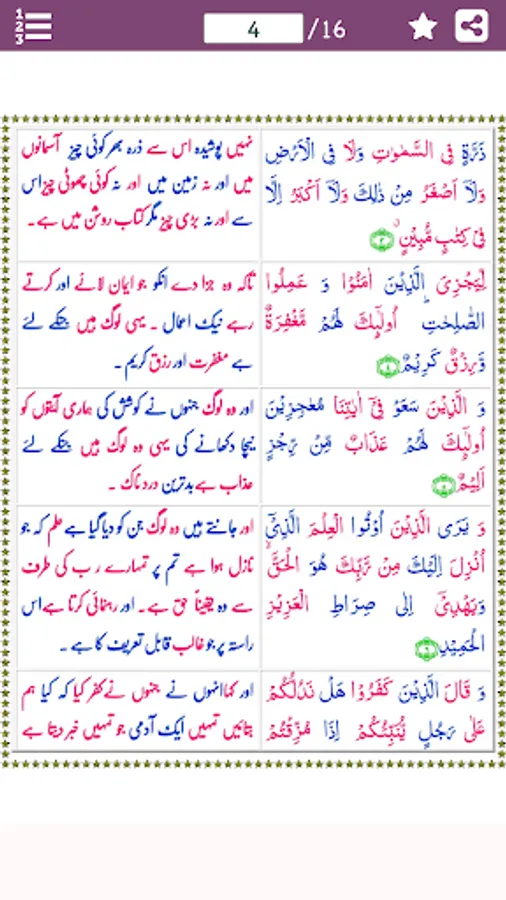 1
2
3
4
/16
ذَرَّةٍ فِي السَّمٰوٰتِ وَلَا فِي الْاَرْضِ
وَلَاۤ اَصْغَرُ مِنْ ذٰلِكَ وَلَاۤ اَكْبَرُ اِلَّا
فِيْ كِتٰبٍ مُّبِيْنٍۙ ۳
نہیں پوشیدہ اس سے ذرہ بھر کوئی چیز آسمانوں
میں اور نہ زمین میں اور نہ کوئی چھوٹی چیز اس
سے اور نہ بڑی چیز مگر کتاب روشن میں ہے۔
لِّيَجْزِيَ الَّذِيْنَ اٰمَنُوْا وَ عَمِلُوا
الصّٰلِحٰتِؕ اُولٰٓئِكَ لَهُمْ مَّغْفِرَةٌ
وَّرِزْقٌ كَرِيْمٌ ۴
تاکہ وہ جزا دے انکو جو ایمان لائے اور کرتے
رہے نیک اعمال ۔ یہی لوگ ہیں جنکے لئے
ہے مغفرت اور رزق کریم ۔
وَ الَّذِيْنَ سَعَوْ فِيْۤ اٰيٰتِنَا مُعٰجِزِيْنَ
اُولٰٓئِكَ لَهُمْ عَذَابٌ مِّنْ رِّجْزٍ
اَلِيْمٌ ۵
اور وہ لوگ جنہوں نے کوشش کی ہماری آیتوں کو
نیچا دکھانے کی یہی وہ لوگ ہیں جنکے لئے
عذاب ہے بدترین دردناک ۔
وَ يَرَى الَّذِيْنَ اُوْتُوا الْعِلْمَ الَّذِيْۤ
اُنْزِلَ اِلَيْكَ مِنْ رَّبِّكَ هُوَ الْحَقَّۙ
وَيَهْدِيْۤ اِلٰى صِرَاطِ الْعَزِيْزِ
الْحَمِيْدِ ۶
اور جانتے ہیں وہ لوگ جن کو دیا گیا ہے علم کہ جو
نازل ہوا ہے تم پر تمہارے رب کی طرف
سے وہ یقیناً حق ہے۔ اور رہنمائی کرتا ہے اس
راستہ پر جو غالب قابل تعریف کا ہے ۔
وَ قَالَ الَّذِيْنَ كَفَرُوْا هَلْ نَدُلُّكُمْ
عَلٰى رَجُلٍ يُّنَبِّئُكُمْ اِذَا مُزِّقْتُمْ
اور کہا انہوں نے جنہوں نے کفر کیا کہ کیا ہم
بتائیں تمہیں ایک آدمی جو تمہیں خبر دیتا ہے